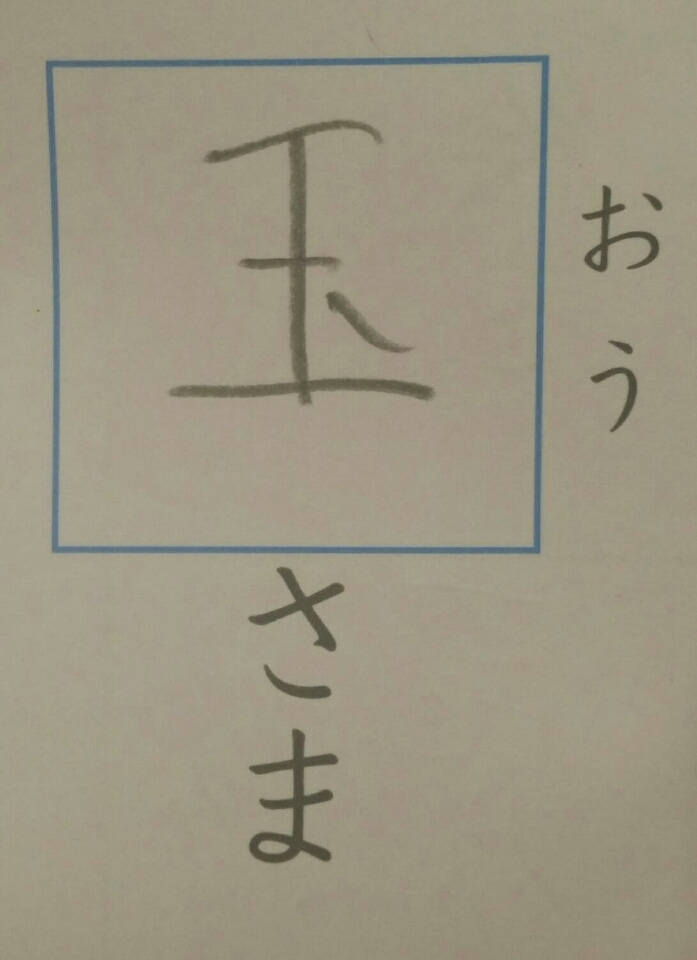 玉さま
おう